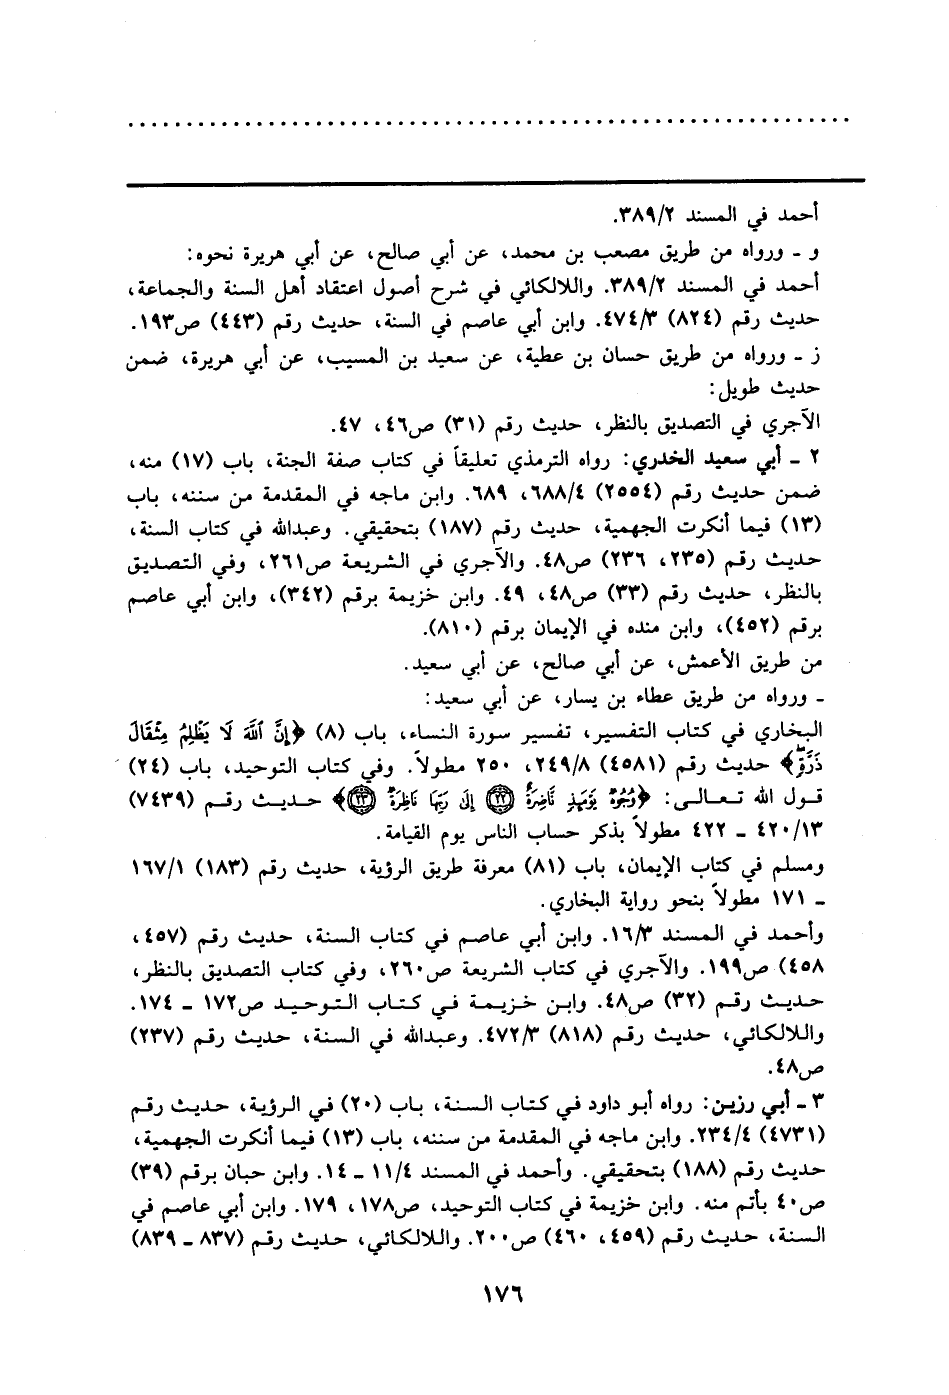 ................................................................
أحمد في المسند ٣٨٩/٢.
و ـ ورواه من طريق مصعب بن محمد، عن أبي صالح، عن أبي هريرة نحوه:
أحمد في المسند ٣٨٩/٢. واللالكائي في شرح أصول اعتقاد أهل السنة والجماعة،
حديث رقم (٨٢٤) ٤٧٤/٣. وابن أبي عاصم في السنة، حديث رقم (٤٤٣) ص١٩٣.
ز ـ ورواه من طريق حسان بن عطية، عن سعيد بن المسيب، عن أبي هريرة، ضمن
حديث طويل:
الآجري في التصديق بالنظر، حديث رقم (٣١) ص٤٦، ٤٧.
٢ ـ أبي سعيد الخدري: رواه الترمذي تعليقاً في كتاب صفة الجنة، باب (١٧) منه،
ضمن حديث رقم (٢٥٥٤) ٦٨٨/٤، ٦٨٩. وابن ماجه في المقدمة من سننه، باب
(١٣) فيما أنكرت الجهمية، حديث رقم (١٨٧) بتحقيقي. وعبدالله في كتاب السنة،
حديث رقم (٢٣٥، ٢٣٦) ص٤٨. والآجري في الشريعة ص٢٦١، وفي التصديق
بالنظر، حديث رقم (٣٣) ص٤٨، ٤٩. وابن خزيمة برقم (٣٤٢)، وابن أبي عاصم
برقم (٤٥٢)، وابن منده في الإيمان برقم (٨١٠).
من طريق الأعمش، عن أبي صالح، عن أبي سعيد.
ـ ورواه من طريق عطاء بن يسار، عن أبي سعيد:
البخاري في كتاب التفسير، تفسير سورة النساء، باب (٨) ﴿إِنَّ ٱللَّهَ لَا يَظْلِمُ مِثْقَالَ
ذَرَّةٍۖ﴾ حديث رقم (٤٥٨١) ٢٤٩/٨، ٢٥٠ مطولاً. وفي كتاب التوحيد، باب (٢٤)
قول الله تعالى: ﴿وُجُوهٌ يَوْمَئِذٍ نَّاضِرَةٌ ﴿٢٢﴾ إِلَىٰ رَبِّهَا نَاظِرَةٌ ﴿٢٣﴾﴾ حديث رقم (٧٤٣٩)
٤٢٠/١٣ ـ ٤٢٢ مطولاً بذكر حساب الناس يوم القيامة.
ومسلم في كتاب الإيمان، باب (٨١) معرفة طريق الرؤية، حديث رقم (١٨٣) ١٦٧/١
ـ ١٧١ مطولاً بنحو رواية البخاري.
وأحمد في المسند ١٦/٣. وابن أبي عاصم في كتاب السنة، حديث رقم (٤٥٧،
٤٥٨) ص١٩٩. والآجري في كتاب الشريعة ص٢٦٠، وفي كتاب التصديق بالنظر،
حديث رقم (٣٢) ص٤٨. وابن خزيمة في كتاب التوحيد ص١٧٢ ـ ١٧٤.
واللالكائي، حديث رقم (٨١٨) ٤٧٢/٣. وعبدالله في السنة، حديث رقم (٢٣٧)
ص٤٨.
٣ ـ أبي رزين: رواه أبو داود في كتاب السنة، باب (٢٠) في الرؤية، حديث رقم
(٤٧٣١) ٢٣٤/٤. وابن ماجه في المقدمة من سننه، باب (١٣) فيما أنكرت الجهمية،
حديث رقم (١٨٨) بتحقيقي. وأحمد في المسند ١١/٤ ـ ١٤. وابن حبان برقم (٣٩)
ص٤٠ بأتم منه. وابن خزيمة في كتاب التوحيد، ص١٧٨، ١٧٩. وابن أبي عاصم في
السنة، حديث رقم (٤٥٩، ٤٦٠) ص٢٠٠. واللالكائي، حديث رقم (٨٣٧ ـ ٨٣٩)
١٧٦